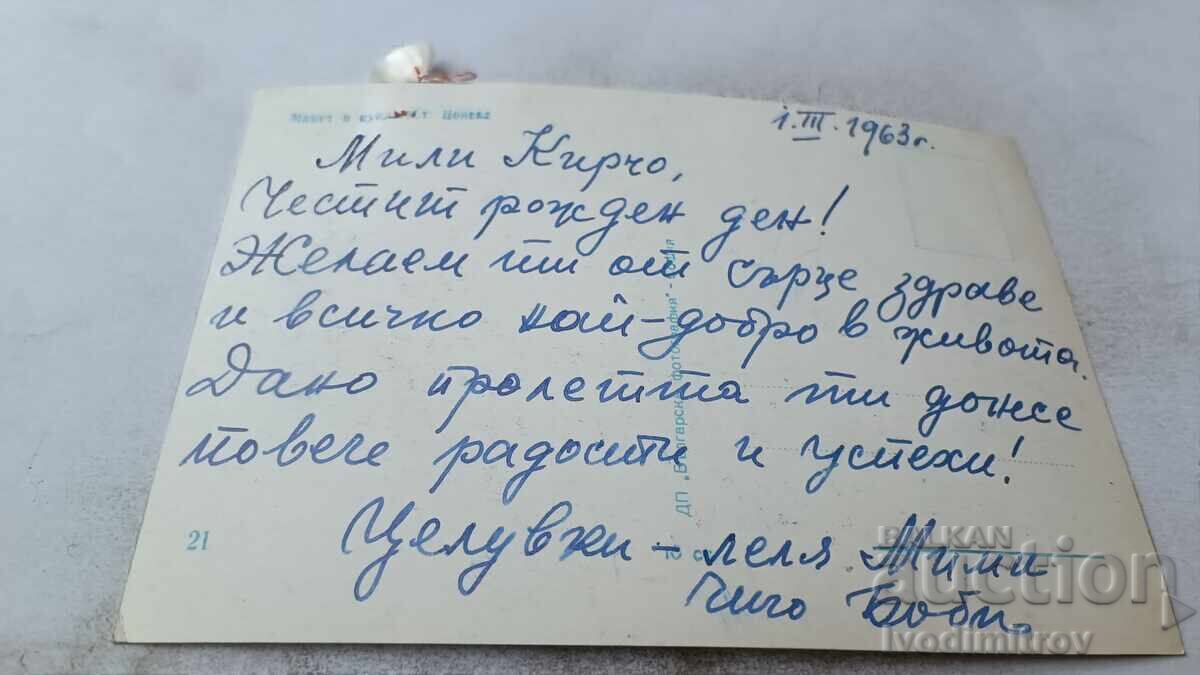 1.III.1963г.
Мили Кирчо,
Честит рожден ден!
Желаем ти от сърце здраве
и всичко най-добро в живота.
Дано пролетта ти донесе
повече радости и успехи!
Целувки - леля Мими
Чичо Боби
21
ДП "Българска фотография" -
BALKAN
auction
Ivodimitrov